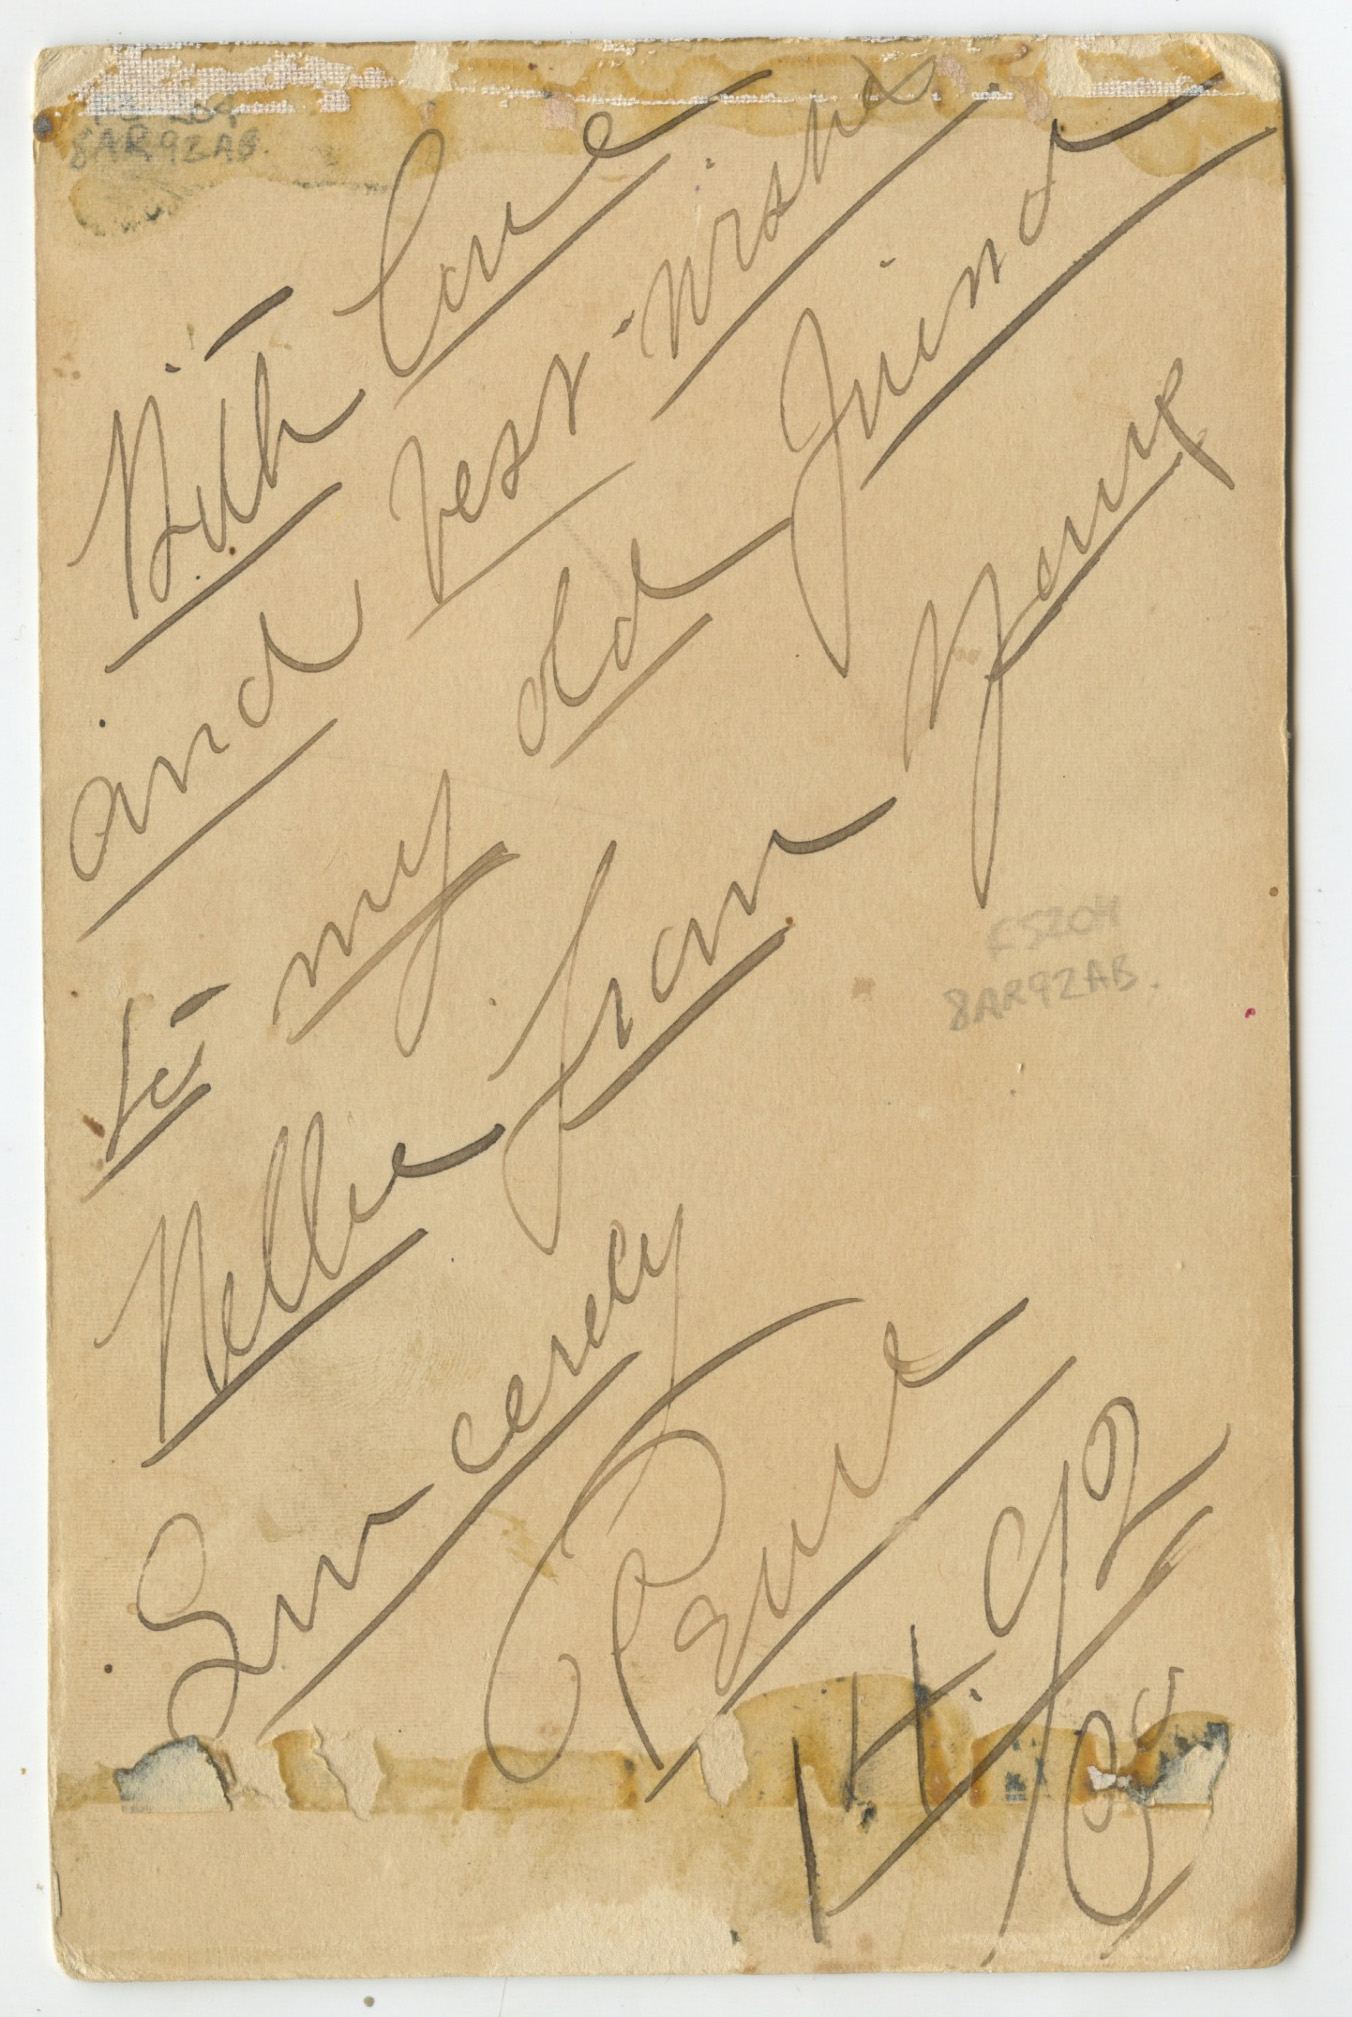 8AR92AB.
With Love
and best wishes
to my old friend
Nellie from Yours
Sincerely
FS204
8AR92AB.